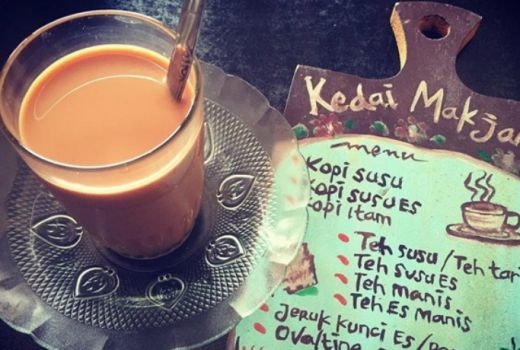 Kedai Makjan
menu
Kopi Susu
Kopi Susu Es
Kopi Itam
Teh susu / Teh tari
Teh susu Es
Teh Manis
Teh Es Manis
Jeruk Kunci Es /
Ovaltine